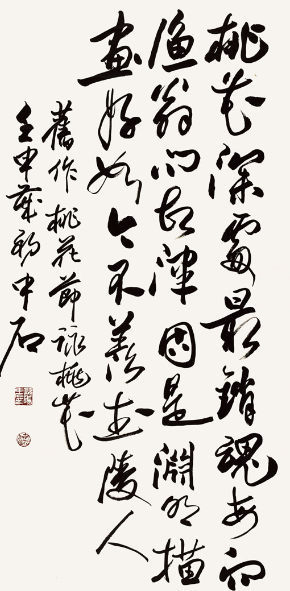 桃花深處最銷魂每向
漁翁問故津因是淵明描
畫好如今不羨武陵人
舊作桃花節詠桃花
壬申歲初中石